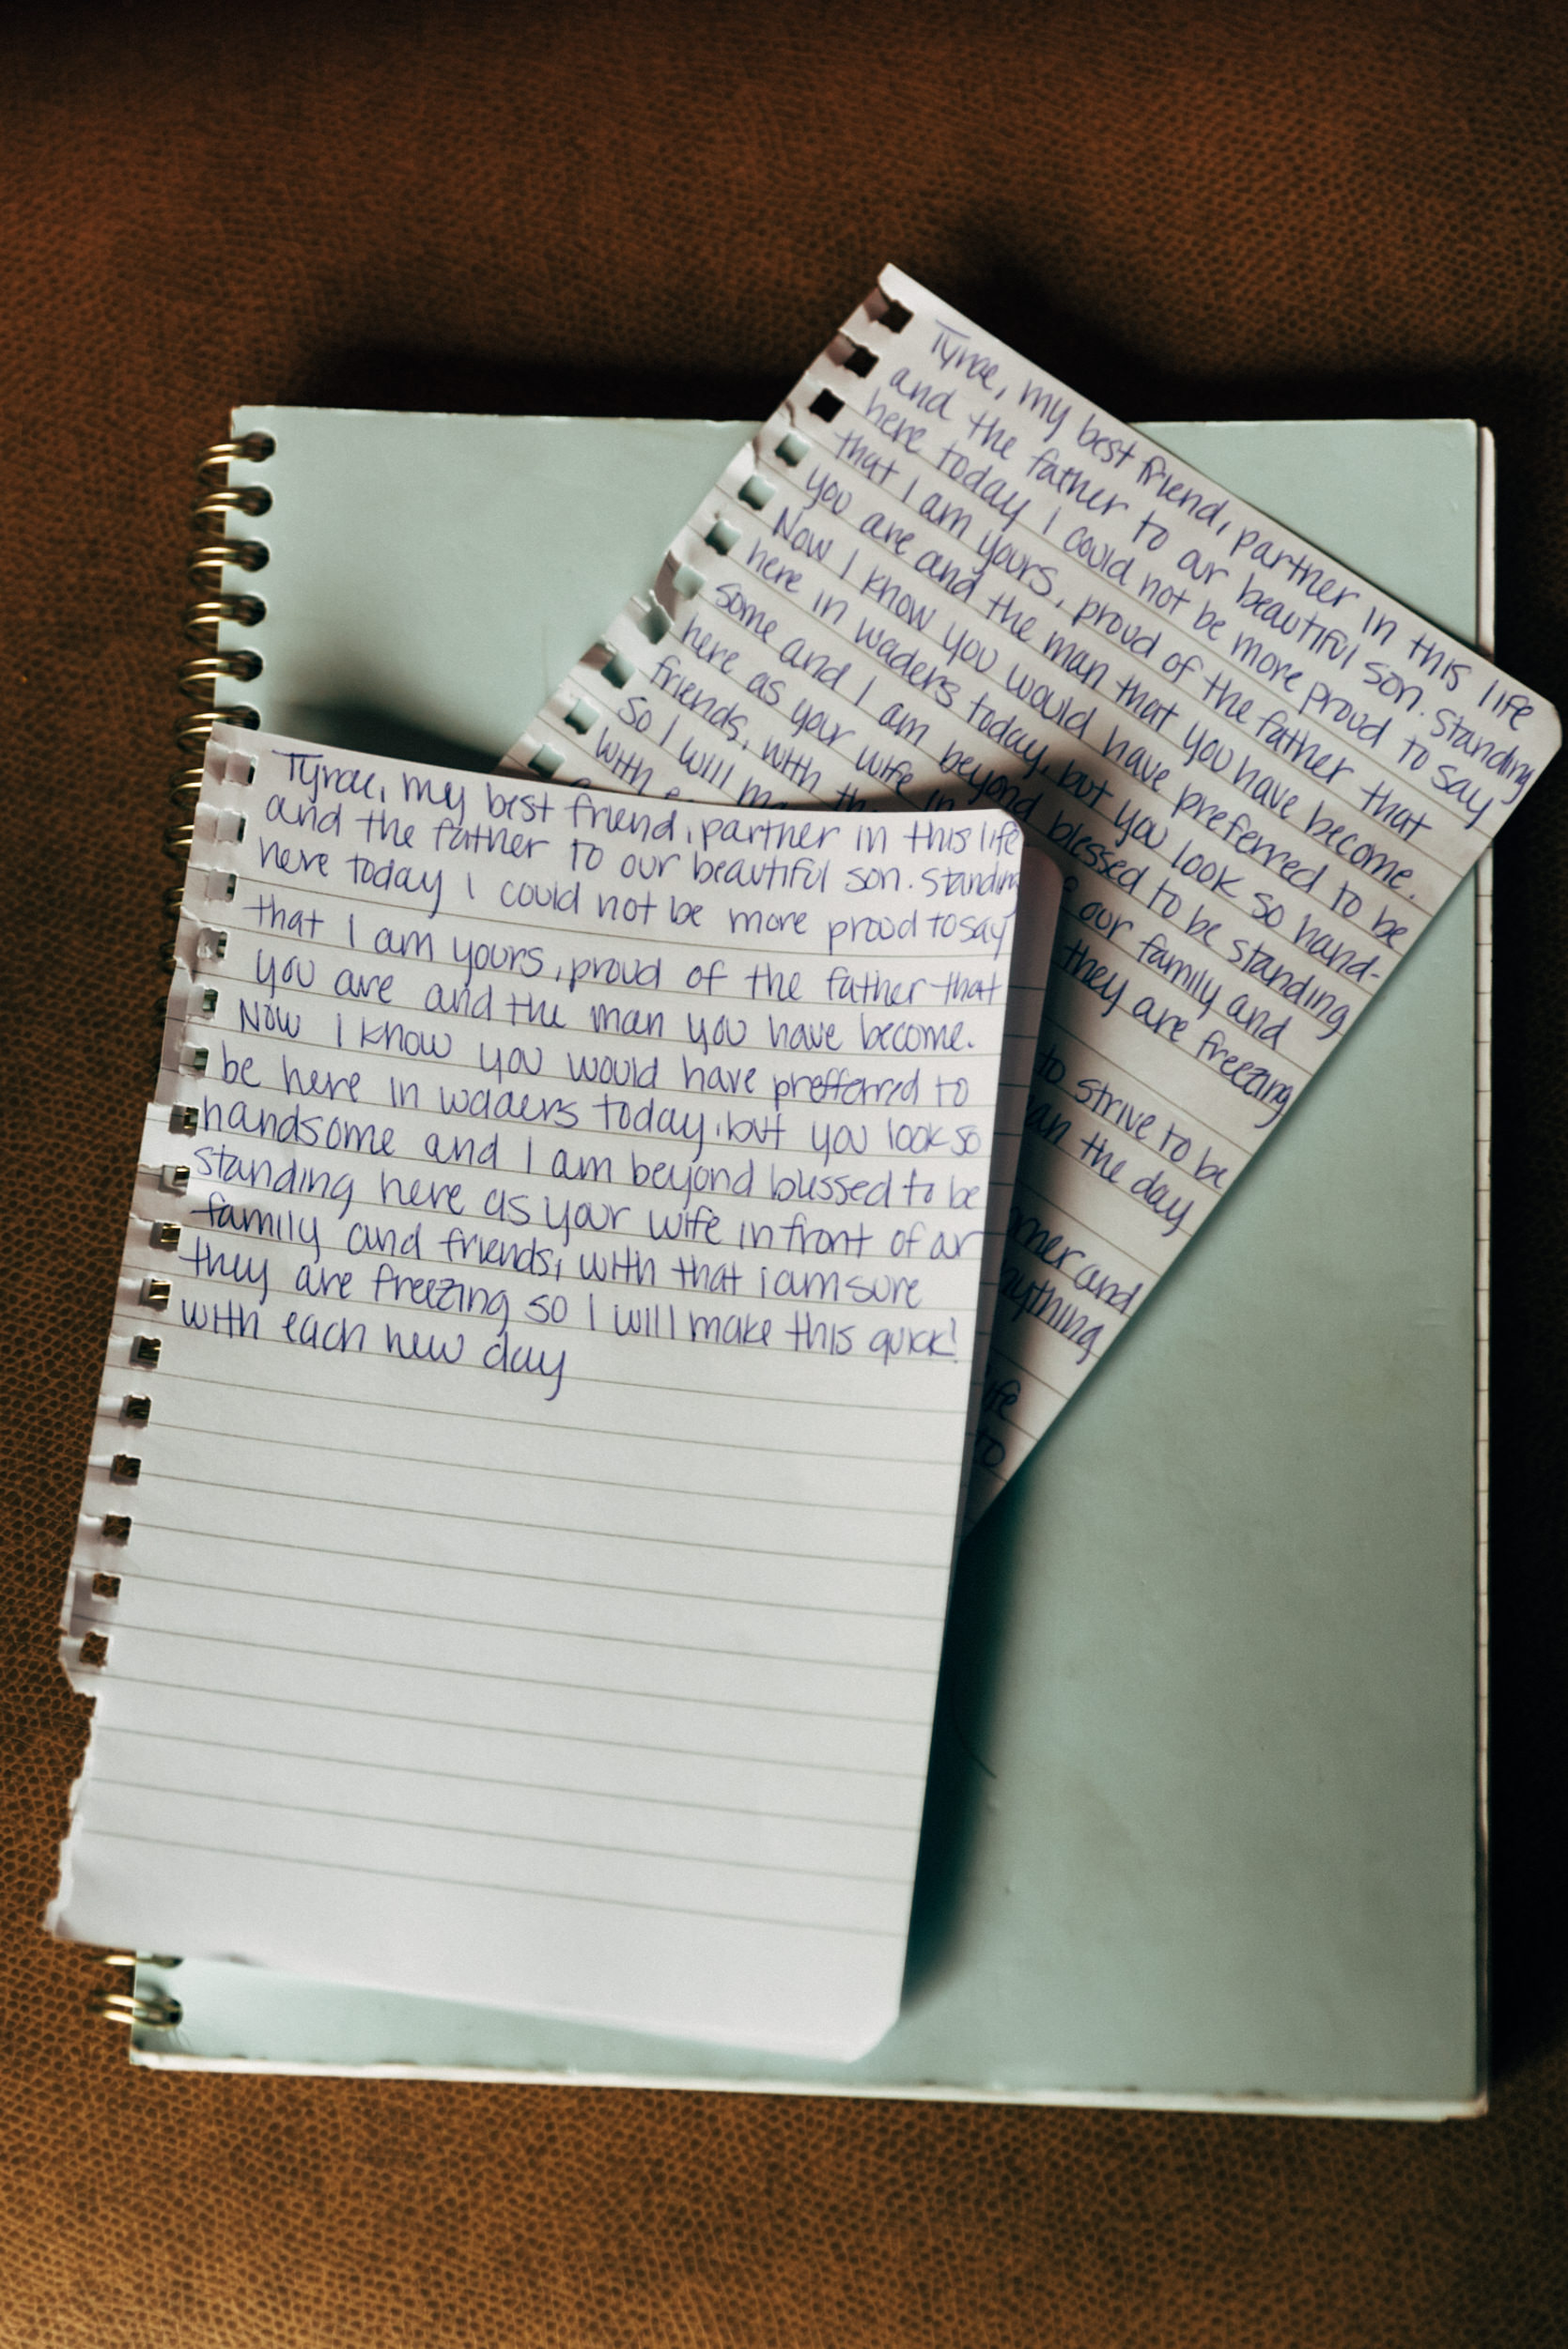 Tyrae, my best friend, partner in this life
and the father to our beautiful son. Standing
here today I could not be more proud to say
that I am yours, proud of the father that
you are and the man that you have become.
Now I know you would have preferred to be
here in waders today, but you look so hand-
some and I am beyond blessed to be standing
here as your wife in our family and
friends, with they are freezing
So I will
with to strive to be
an the day
and
anything
to
Tyrae, my best friend, partner in this life
and the father to our beautiful son. Standing
here today I could not be more proud to say
that I am yours, proud of the father that
you are and the man you have become.
Now I know you would have prefferred to
be here in waders today, but you look so
handsome and I am beyond blessed to be
standing here as your wife in front of our
family and friends, with that i am sure
they are freezing so I will make this quick!
with each new day